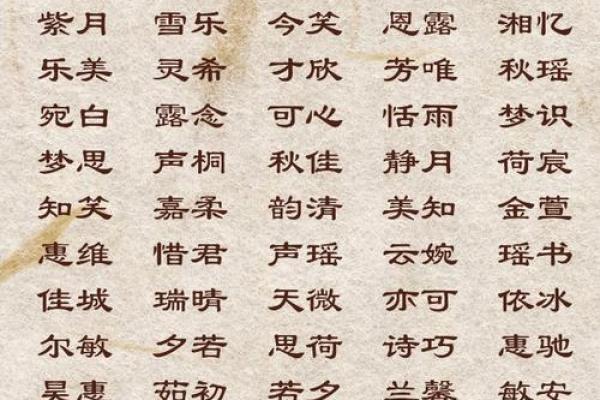 紫月 雪乐 今笑 恩露 湘忆
乐美 灵希 才欣 芳唯 秋瑶
宛白 露念 可心 恬雨 梦识
梦思 声桐 秋佳 静月 荷宸
知笑 嘉柔 韵清 美知 金萱
惠维 惜君 声瑶 云婉 瑶书
佳城 瑞晴 天微 亦可 依冰
尔敏 夕若 思荷 诗巧 惠驰
昊惠 茹初 若夕 兰馨 敏安